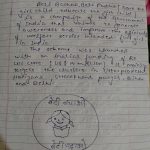 Beti Bachao, Beti Padhao (save the
girl child, educate the girl child)
is a campaign of the Government
of India that aims to generate
awareness and improve the efficiency
of welfare services intended for
in India.
The scheme was launched
with an initial funding of Rs
100 crore
targets the clusters in Uttar Pradesh
Haryana, Uttarakhand, Punjab, Bihar
and Delhi
बेटी बचाओ
बेटी पढ़ाओ